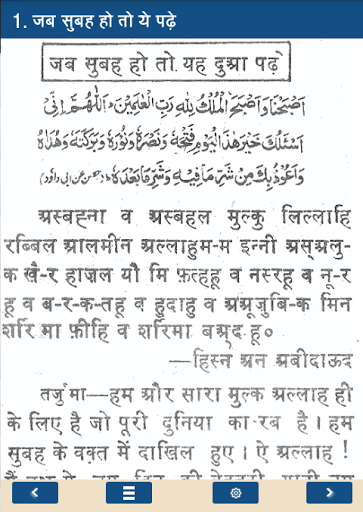 1. जब सुबह हो तो ये पढ़े
जब सुबह हो तो यह दुआ पढ़ें
اَصْبَحْنَا وَاَصْبَحَ الْمُلْكُ لِلّٰهِ رَبِّ الْعٰلَمِيْنَ اَللّٰهُمَّ اِنِّيْ
اَسْئَلُكَ خَيْرَ هٰذَا الْيَوْمِ فَتْحَهٗ وَنَصْرَهٗ وَنُوْرَهٗ وَبَرَكَتَهٗ وَهُدَاهُ
وَاَعُوْذُ بِكَ مِنْ شَرِّ مَا فِيْهِ وَشَرِّ مَا بَعْدَهٗ (حصن عن ابی داؤد)
अस्बह्ना व अस्बहल मुल्कु लिल्लाहि
रब्बिल आलमीन अल्लाहुम-म इन्नी अस्अलु-
क खै-र हाज़ल यौ मि फ़त्हहू व नस्रहू व नू-र
हू व ब-र-क-तहू व हुदाहु व अअूजुबि-क मिन
शर्रि मा फ़ीहि व शर्रिमा बअ्दहू०
—हिस्न अन अबीदाऊद
तर्जुमा—हम और सारा मुल्क अल्लाह ही
के लिए है जो पूरी दुनिया का रब है। हम
सुबह के वक़्त में दाख़िल हुए। ऐ अल्लाह!